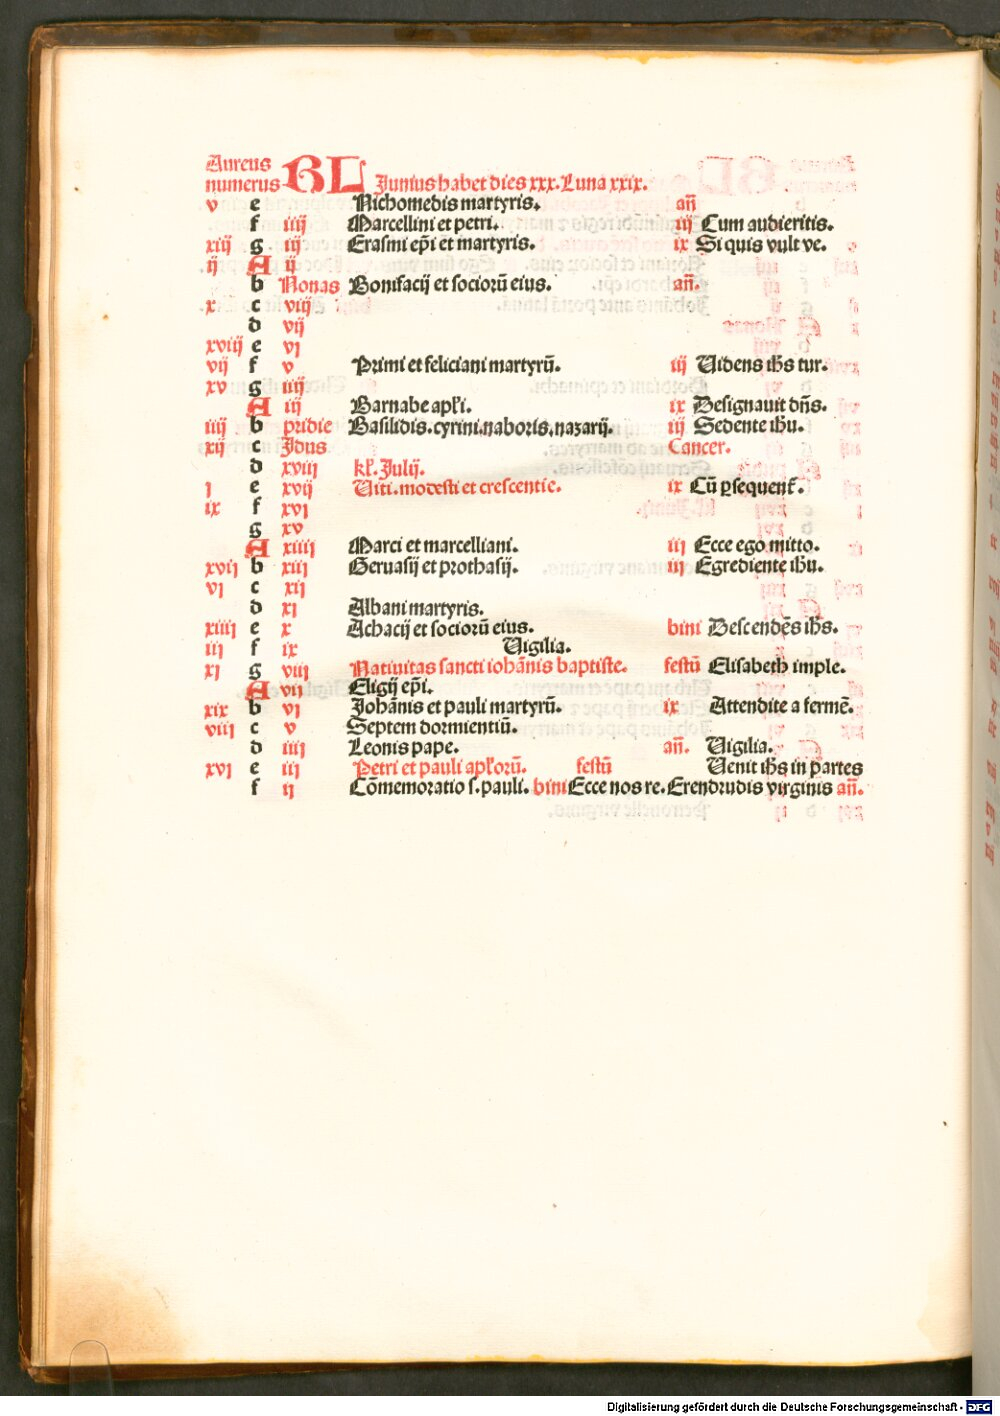 Aureus
numerus KL Junius habet dies xxx. Luna xxix.
v e Nichomedis martyris. an̄
f iiij Marcellini et petri. iij Cum audieritis.
xiij g iij Erasmi ep̄i et martyris. ix Si quis vult ve.
ij A ij
b Nonas Bonifacij et sociorū eius. an̄.
x c viij
d vij
xviij e vj
vij f v Primi et feliciani martyrū. iij Uidens ih̄s tur.
xv g iiij
A iij Barnabe apl̄i. ix Designauit dn̄s.
iiij b pridie Basilidis. cyrini. naboris. nazarij. iij Sedente ih̄u.
xij c Jdus Cancer.
d xviij kl̄. Julij.
j e xvij Uiti. modesti et crescentie. ix Cū ꝑsequent̄.
ix f xvj
g xv
A xiiij Marci et marcelliani. iij Ecce ego mitto.
xvij b xiij Geruasij et prothasij. iij Egrediente ih̄u.
vj c xij
d xj Albani martyris.
xiiij e x Achacij et sociorū eius. bini Descendēs ih̄s.
iij f ix Uigilia.
xj g viij Natiuitas sancti iohānis baptiste. festū Elisabeth imple.
A vij Eligij ep̄i.
xix b vj Johānis et pauli martyrū. ix Attendite a fermē.
viij c v Septem dormientiū.
d iiij Leonis pape. an̄. Uigilia.
xvj e iij Petri et pauli apl̄orū. festū Uenit ih̄s in partes
f ij Cōmemoratio s. pauli. bini Ecce nos re. Erendrudis virginis an̄.
Digitalisierung gefördert durch die Deutsche Forschungsgemeinschaft - DFG